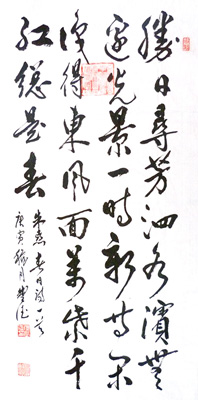 勝日尋芳泗水濱無
邊光景一時新等閑
識得東風面萬紫千
紅總是春
朱熹春日詩一首
庚寅月